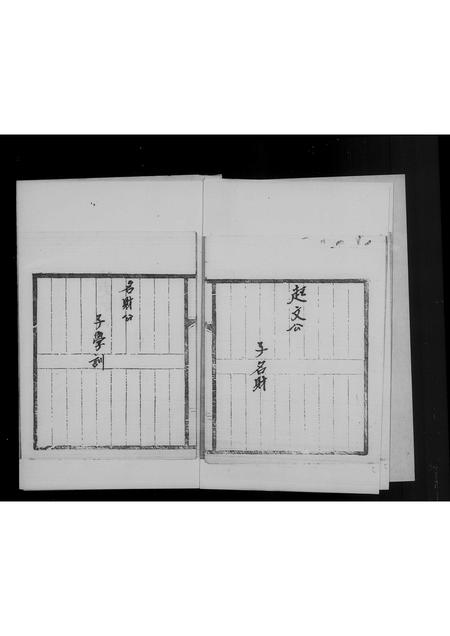 起文公
子名財
名財公
子學訓